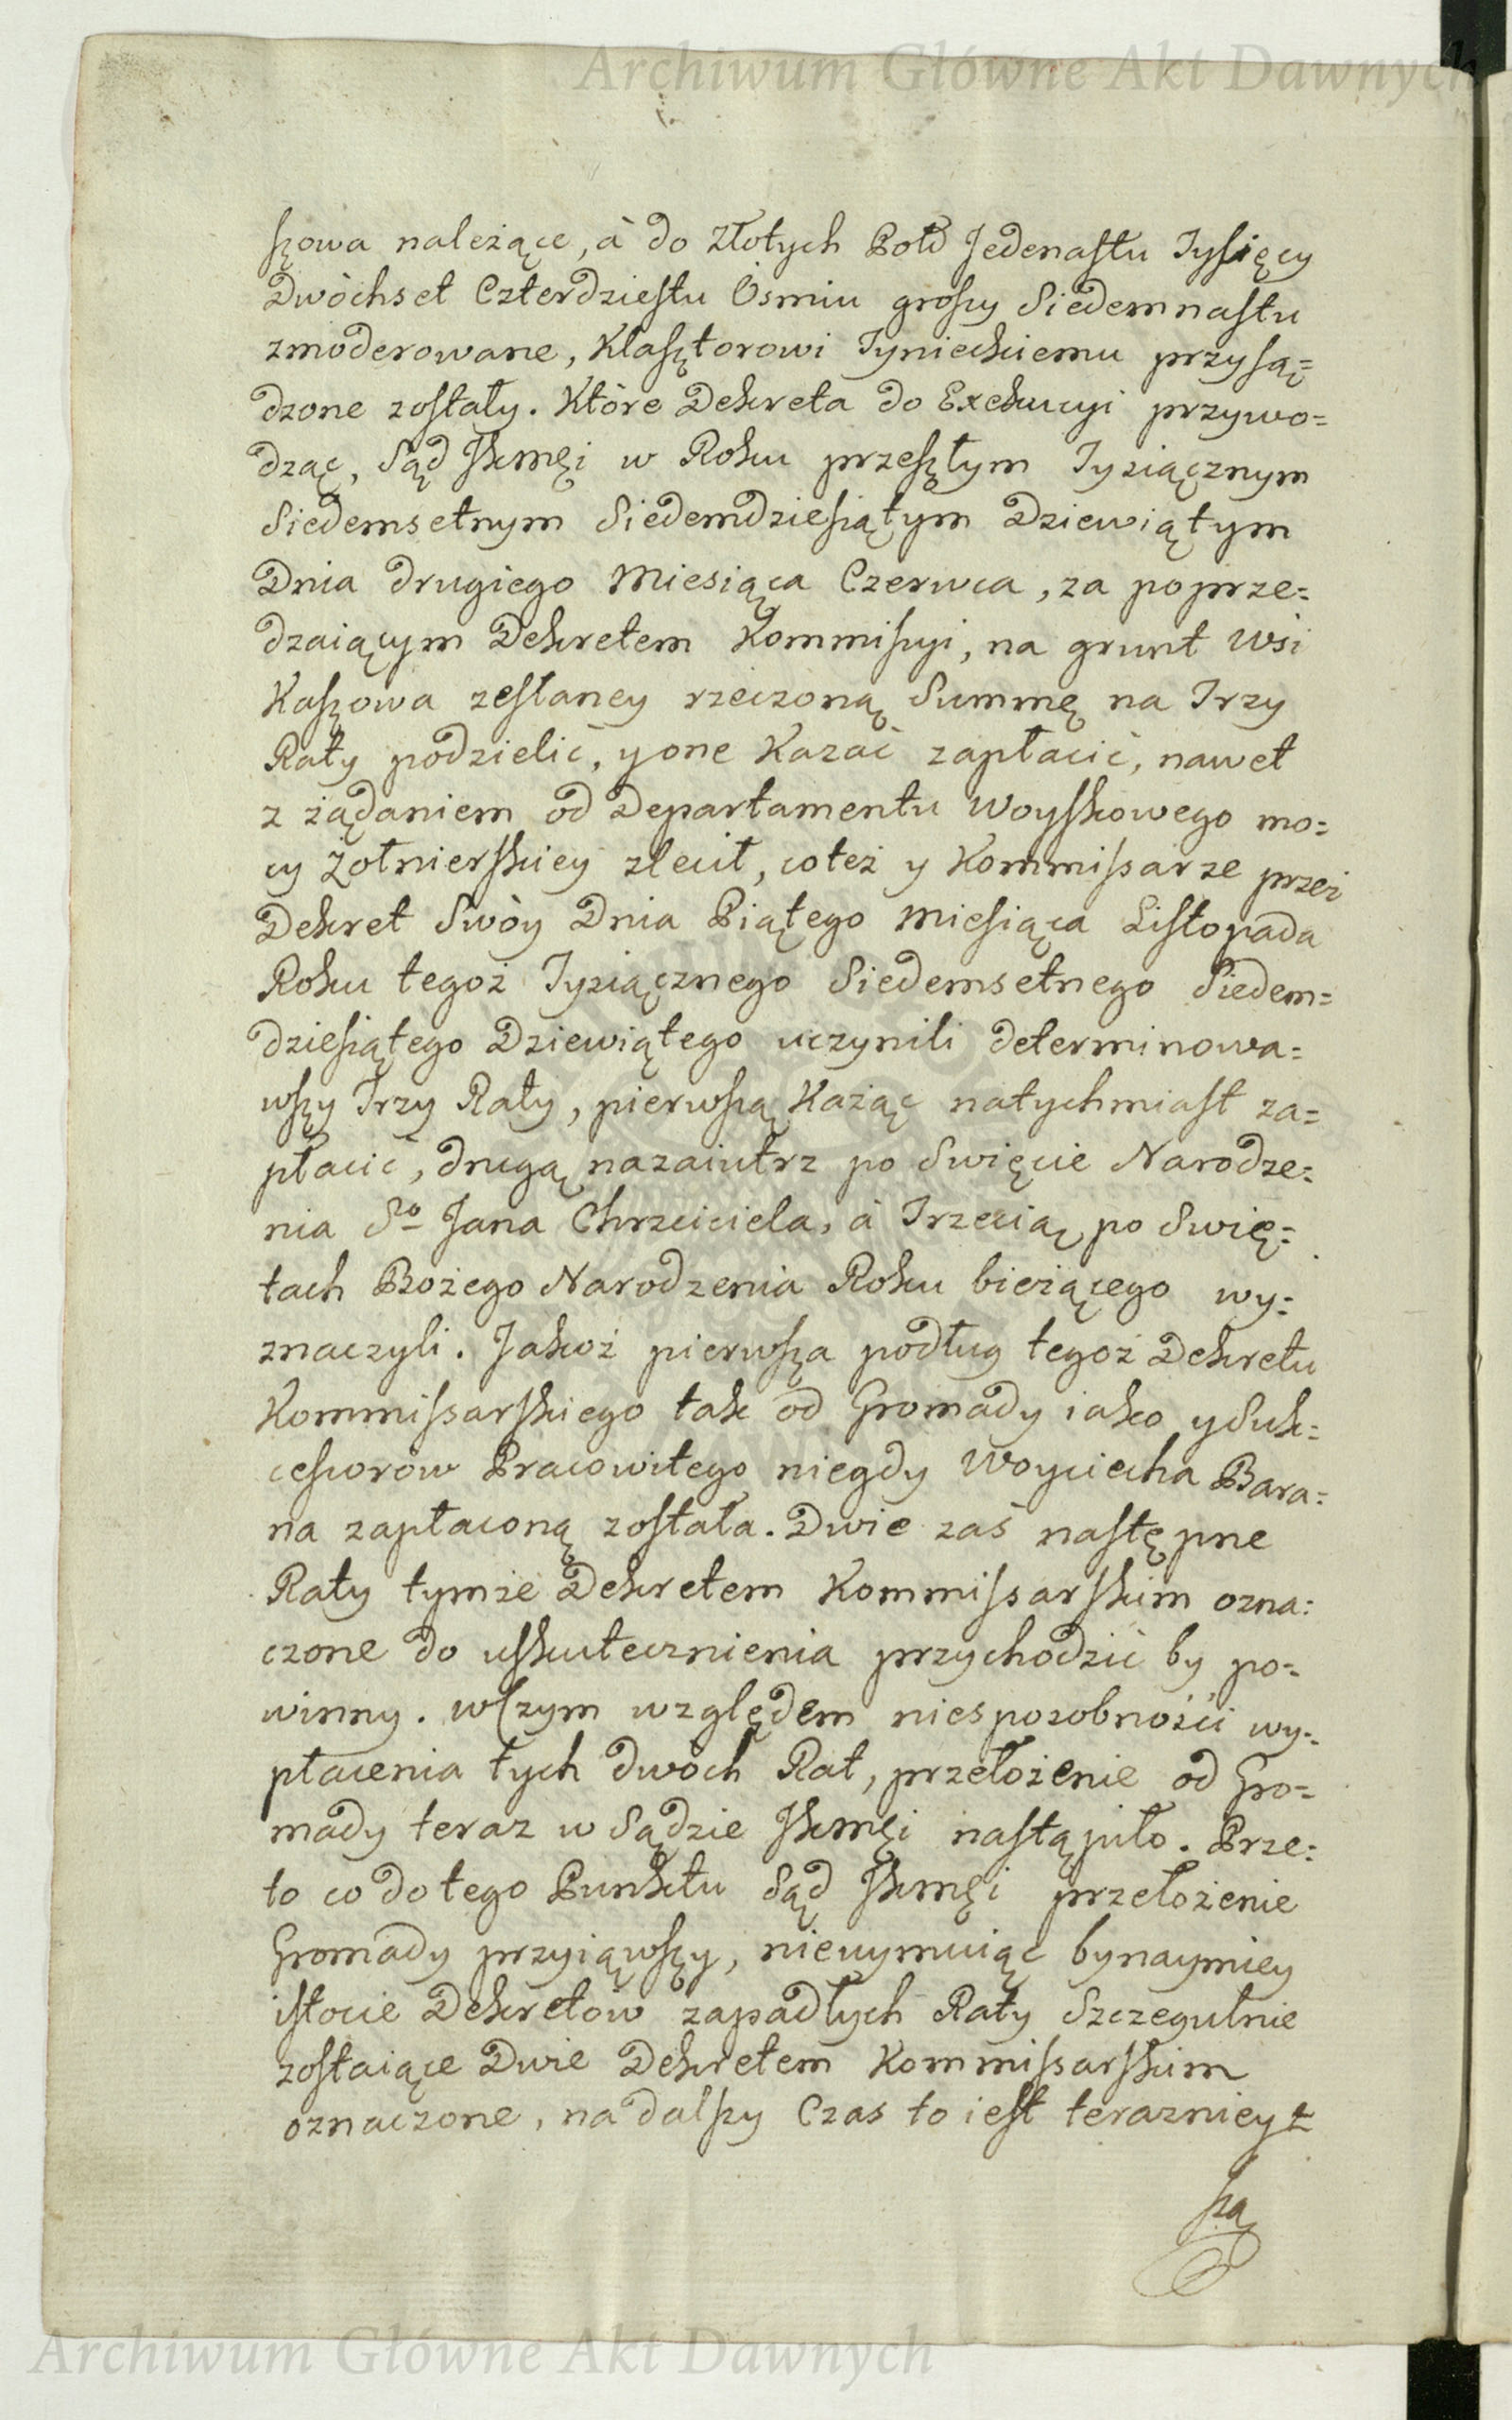 Archiwum Główne Akt Dawnych
szowa należące, à do Złotych Pold Jedenastu Tysięcy
Dwòchset Czterdziestu Osmiu groszy Siedemnastu
zmoderowane, Klasztorowi Tynieckiemu przysą=
dzone zostały. Ktòre Dekreta do Exekucyi przywo=
dząc, Sąd JKmci w Roku przeszłym Tysiącznym
Siedemsetnym Siedemdziesiątym Dziewiątym
Dnia drugiego Miesiąca Czerwca, za poprze=
dzaiącym Dekretem Kommissyi, na grunt Wsi
Kaszowa zesłaney rzeczoną Summę na Trzy
Raty podzielić, y one Kazać zapłacić, nawet
z żądaniem od Departamentu Woyskowego mo=
cy Zołnierskiey zlecił, co też y Kommissarze przez
Dekret Swòy Dnia Piątego Miesiąca Listopada
Roku tegoż Tysiącznego Siedemsetnego Siedem=
dziesiątego Dziewiątego uczynili determinowa=
wszy Trzy Raty, pierwszą Każąc natychmiast za=
płacić, drugą nazaiutrz po Swięcie Narodze=
nia So Jana Chrzciciela, à Trzecią po Swię=
tach Bożego Narodzenia Roku bieżącego wy=
znaczyli. Jakoż pierwsza podług tegoż Dekretu
Kommissarskiego tak od Gromady iako y Suk=
cessorów Pracowitego niegdy Woyciecha Bara=
na zapłaconą została. Dwie zaś następne
Raty tymże Dekretem Kommissarskim ozna=
czone do uskutecznienia przychodzić by po=
winny. w czym względem niesposobności wy=
płacenia tych dwòch Rat, przełożenie od Gro=
mady teraz w Sądzie JKmci nastąpiło. Prze=
to co do tego Punktu Sąd JKmci przełożenie
Gromady przyiąwszy, nieuymuiąc bynaymniey
istocie Dekretów zapadłych Raty Szczegulnie
zostaiące Dwie Dekretem Kommissarskim
oznaczone, na dalszy Czas to iest teraznieys=
szą
Archiwum Główne Akt Dawnych